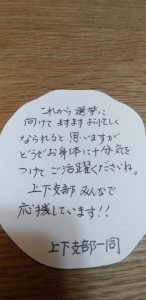 これから選挙に
向けてますますお忙しく
なられると思いますが
どうぞお身体に十分気を
つけてご活躍くださいね。
上下支部みんなで
応援しています!!
上下支部一同